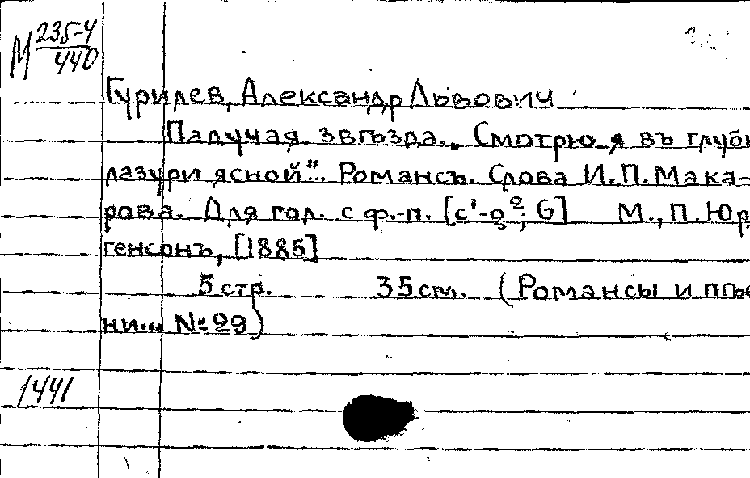 М 235-4
440
Гурилев, Александр Львович
Падучая звѣзда. „Смотрю я въ глубь
лазури ясной". Романсъ. Слова И.П. Мака-
рова. Для гол. с ф.-п. [c¹-g²; G] М., П. Юр
генсонъ, [1885]
5 стр. 35 см. (Романсы и пѣс
ни... № 29)
1441